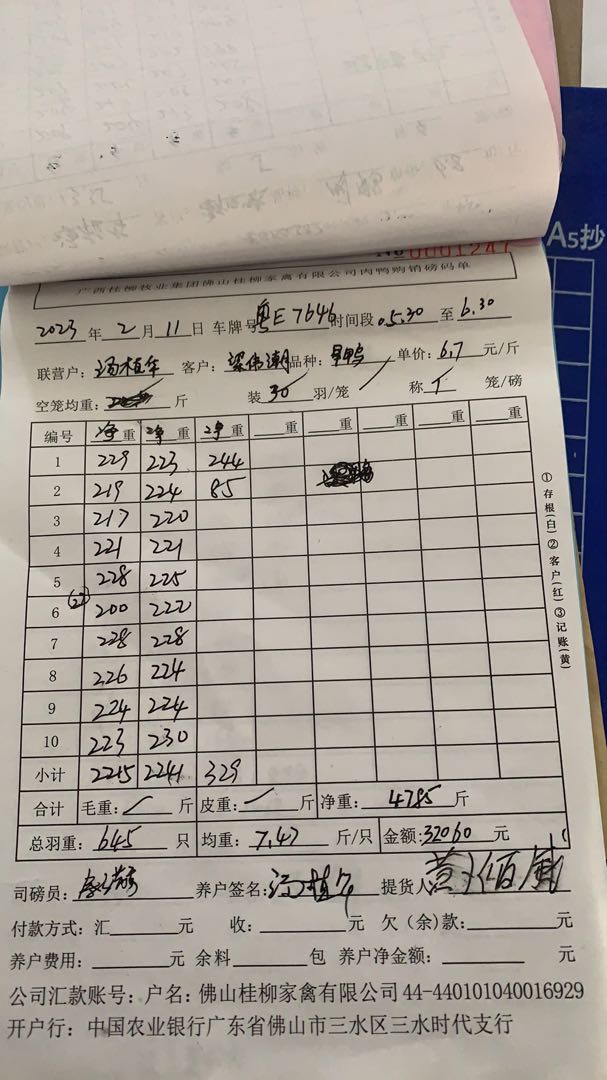 A5抄
No 0001247
广西桂柳牧业集团佛山桂柳家禽有限公司肉鸭购销磅码单
2023 年 2 月 11 日 车牌号 粤E7646 时间段 05.30 至 6.30
联营户: 汤植年 客户: 梁伟潮 品种: 旱鸭 单价: 6.7 元/斤
空笼均重: 斤 装 30 羽/笼 称 笼/磅
编号 净重 净重 净重 重 重 重 重
1 229 223 244
2 219 224 85
3 217 220
4 221 221
5 228 225
6 (27) 200 222
7 228 228
8 226 224
9 224 224
10 223 230
小计 2215 2241 329
合计 毛重: 斤 皮重: 斤 净重: 4785 斤
总羽重: 645 只 均重: 7.47 斤/只 金额: 32060 元
司磅员: 养户签名: 提货人
付款方式: 汇 元 收: 元 欠(余)款: 元
养户费用: 元 余料 包 养户净金额: 元
公司汇款账号: 户名: 佛山桂柳家禽有限公司 44-440101040016929
开户行: 中国农业银行广东省佛山市三水区三水时代支行
①存根(白)②客户(红)③记账(黄)